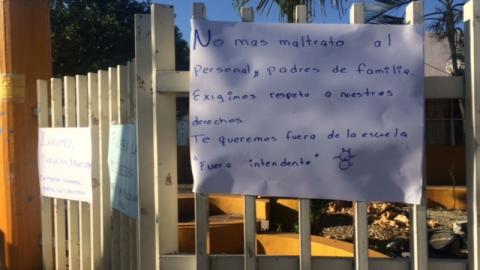 No mas maltrato al
personal y padres de familia.
Exigimos respeto a nuestros
derechos.
Te queremos fuera de la escuela
"Fuera intendente"